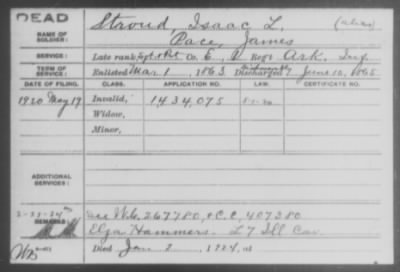 DEAD
NAME OF SOLDIER: Stroud, Isaac L. (alias)
Pace, James
SERVICE: Late rank, Co. E, Reg't Ark. Inf.
TERM OF SERVICE: Enlisted Mar. 1, 1863 Discharged June 12, 1865
DATE OF FILING. CLASS. APPLICATION NO. LAW. CERTIFICATE NO.
1920 May 19 Invalid, 1434,075
Widow,
Minor,
ADDITIONAL SERVICES:
REMARKS: 267780, & C.C. 407380
Elza Hammers. L 7 Ill Cav.
Died Jan 2, 1924, at